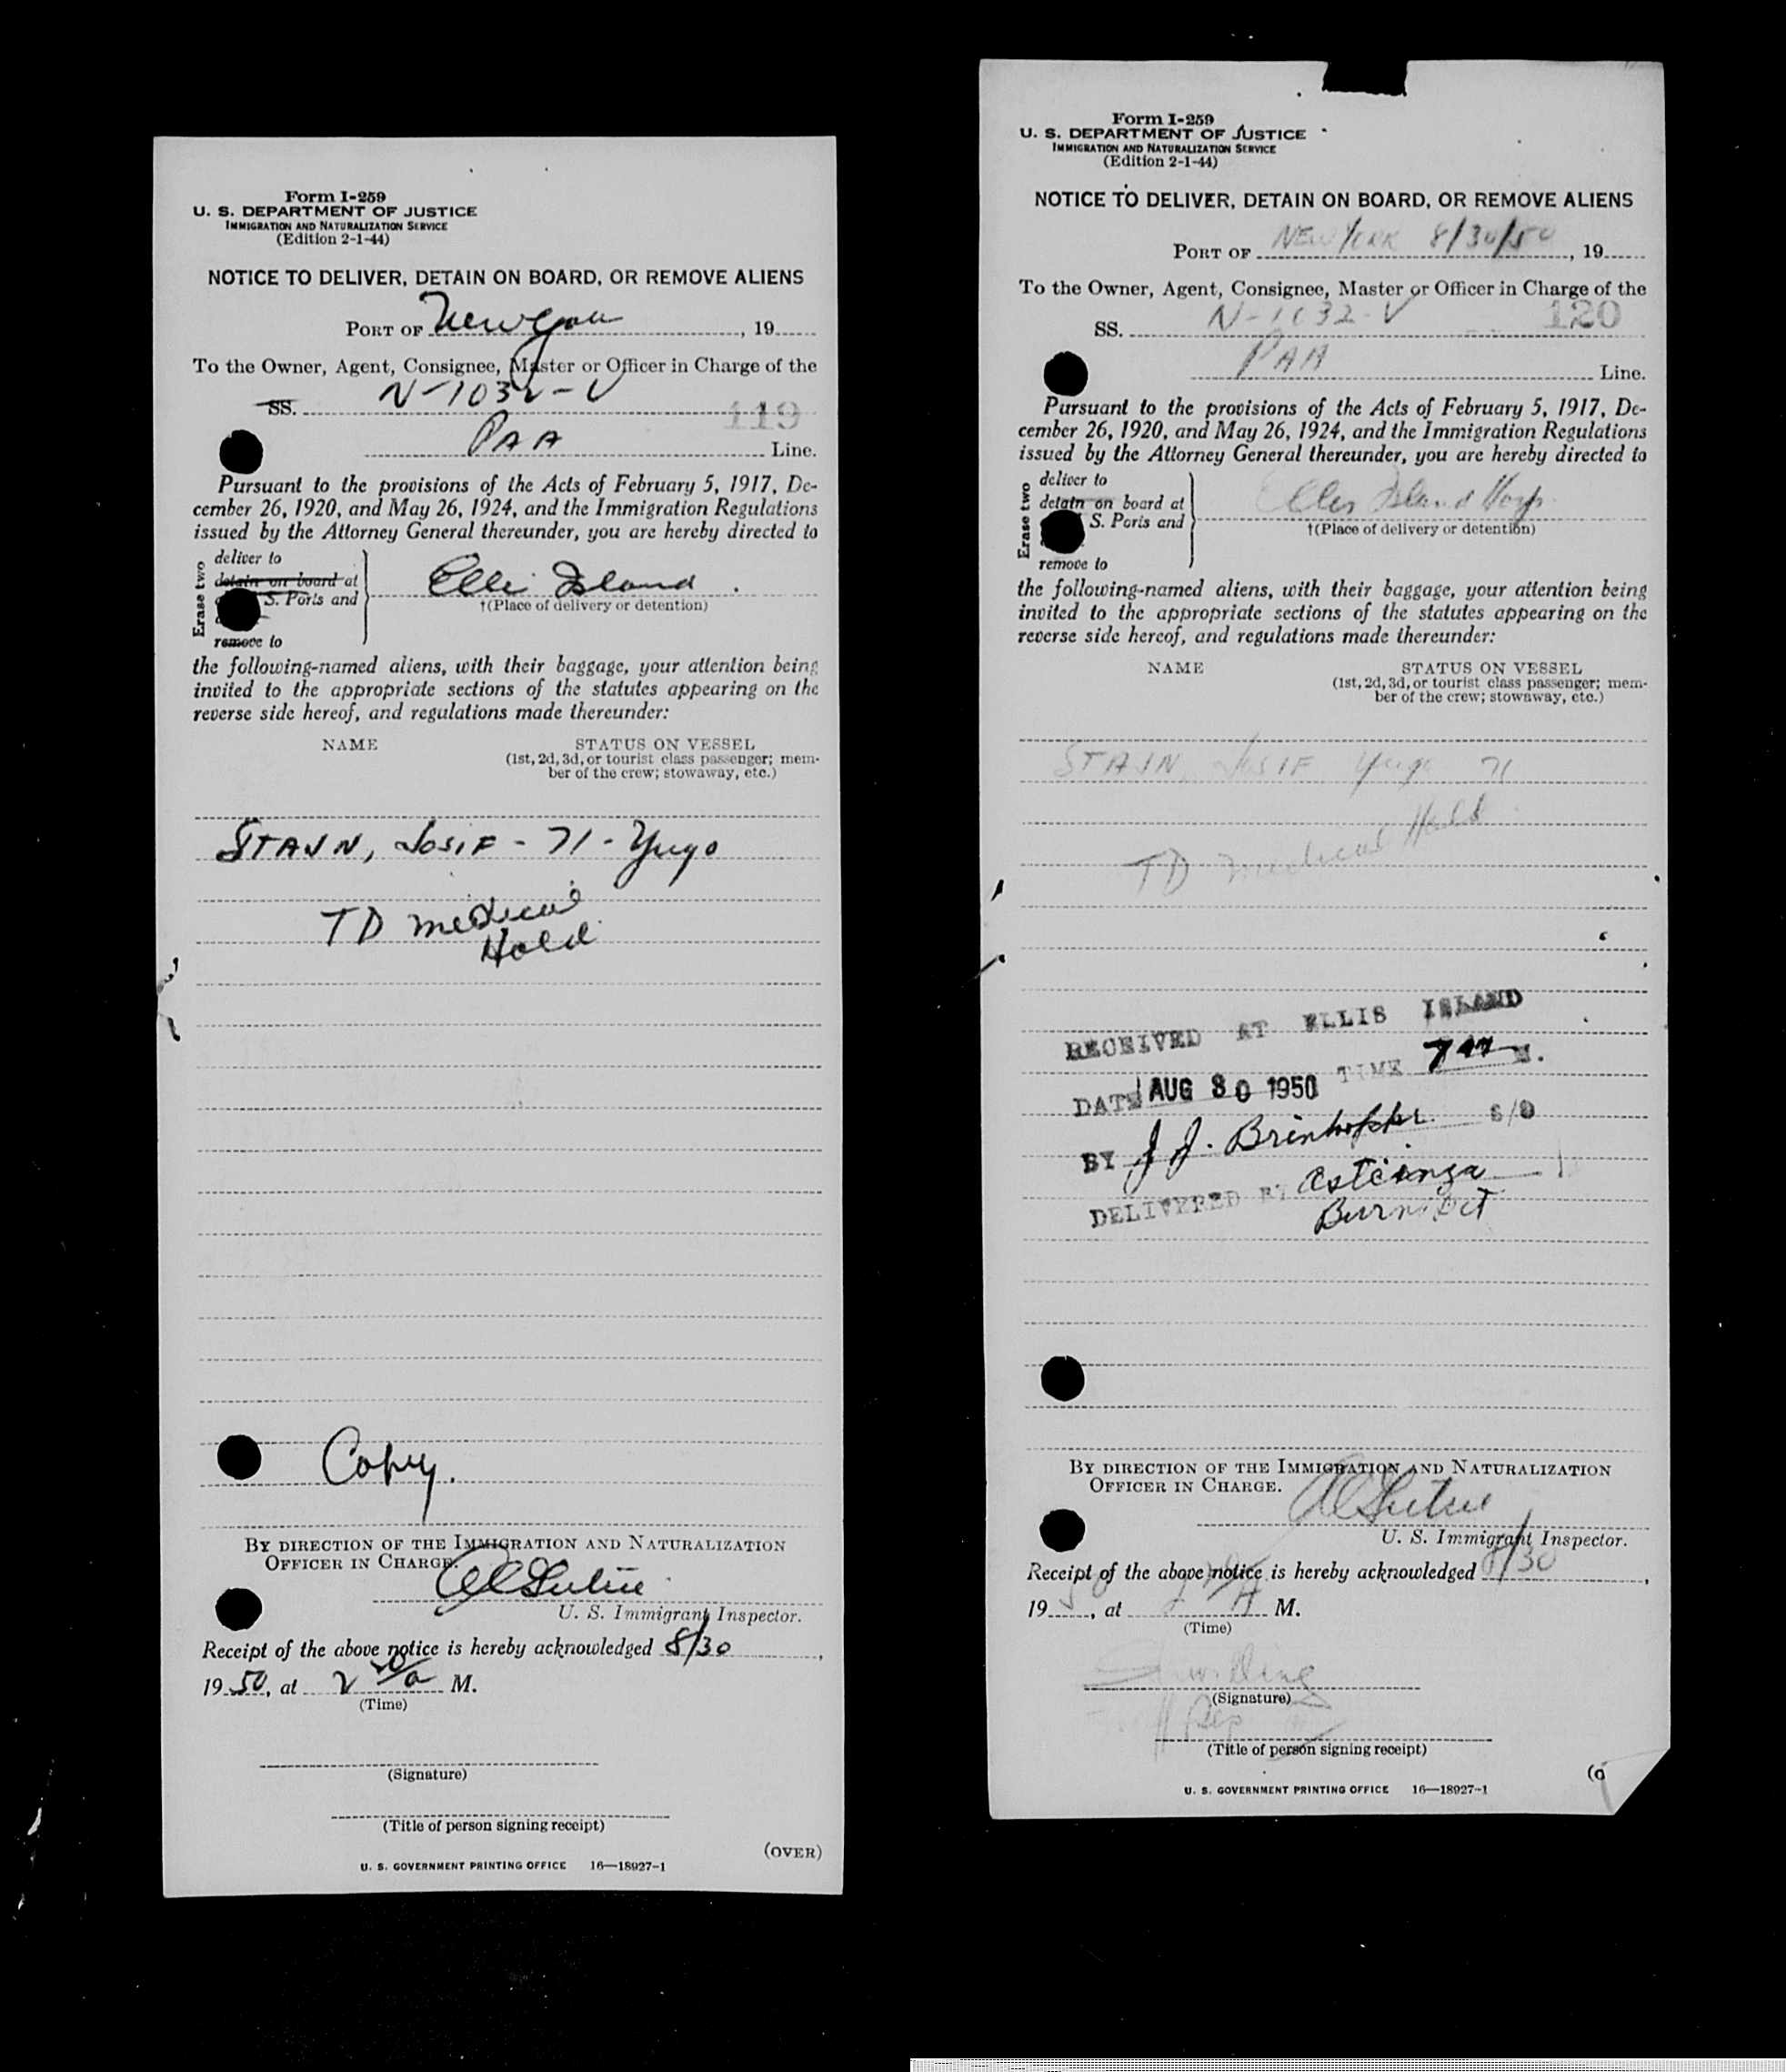 Form I-259
U. S. DEPARTMENT OF JUSTICE
IMMIGRATION AND NATURALIZATION SERVICE
(Edition 2-1-44)
NOTICE TO DELIVER, DETAIN ON BOARD, OR REMOVE ALIENS
PORT OF New York, 19
To the Owner, Agent, Consignee, Master or Officer in Charge of the
SS. N-1032-V
119
PAA Line.
Pursuant to the provisions of the Acts of February 5, 1917, De-
cember 26, 1920, and May 26, 1924, and the Immigration Regulations
issued by the Attorney General thereunder, you are hereby directed to
Erase two
deliver to
detain on board at
S. Ports and
remove to
Ellis Island
†(Place of delivery or detention)
the following-named aliens, with their baggage, your attention being
invited to the appropriate sections of the statutes appearing on the
reverse side hereof, and regulations made thereunder:
NAME STATUS ON VESSEL
(1st, 2d, 3d, or tourist class passenger; mem-
ber of the crew; stowaway, etc.)
STAJN, Josif - 71 - Yugo
TD medical
Hold
Copy.
BY DIRECTION OF THE IMMIGRATION AND NATURALIZATION
OFFICER IN CHARGE.
U. S. Immigrant Inspector.
Receipt of the above notice is hereby acknowledged 8/30,
19 50, at 2 M.
(Time)
(Signature)
(Title of person signing receipt)
(OVER)
U. S. GOVERNMENT PRINTING OFFICE 16—18927-1
Form I-259
U. S. DEPARTMENT OF JUSTICE
IMMIGRATION AND NATURALIZATION SERVICE
(Edition 2-1-44)
NOTICE TO DELIVER, DETAIN ON BOARD, OR REMOVE ALIENS
PORT OF NEW YORK 8/30/50, 19
To the Owner, Agent, Consignee, Master or Officer in Charge of the
SS. N-1032-V
120
PAA Line.
Pursuant to the provisions of the Acts of February 5, 1917, De-
cember 26, 1920, and May 26, 1924, and the Immigration Regulations
issued by the Attorney General thereunder, you are hereby directed to
Erase two
deliver to
detain on board at
S. Ports and
remove to
Ellis Island Hosp.
†(Place of delivery or detention)
the following-named aliens, with their baggage, your attention being
invited to the appropriate sections of the statutes appearing on the
reverse side hereof, and regulations made thereunder:
NAME STATUS ON VESSEL
(1st, 2d, 3d, or tourist class passenger; mem-
ber of the crew; stowaway, etc.)
STAJN, Josif Yugo 71
TD medical Hold
RECEIVED AT ELLIS ISLAND
DATE AUG 30 1950 TIME M.
BY J J.
DELIVERED BY
BY DIRECTION OF THE IMMIGRATION AND NATURALIZATION
OFFICER IN CHARGE.
U. S. Immigrant Inspector.
Receipt of the above notice is hereby acknowledged 8/30,
19 50, at M.
(Time)
(Signature)
(Title of person signing receipt)
U. S. GOVERNMENT PRINTING OFFICE 16—18927-1